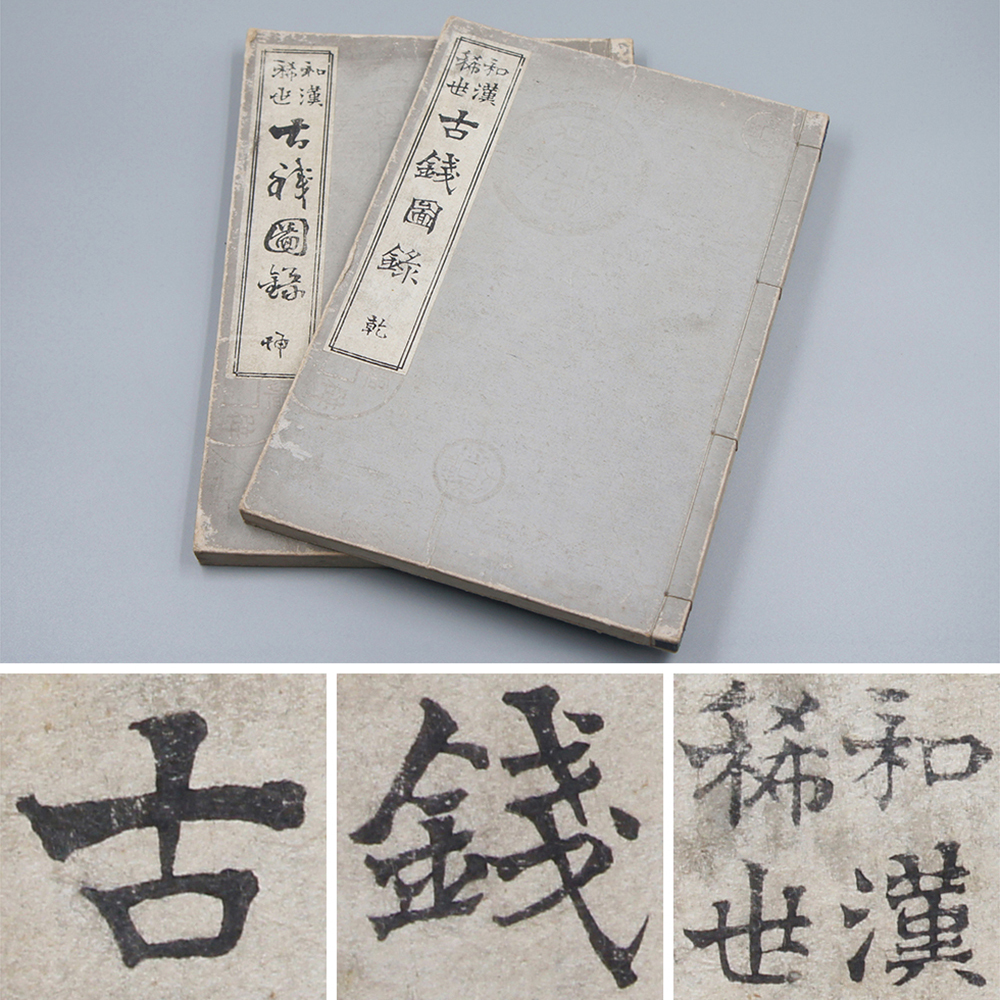 和漢
稀世
古錢圖錄
坤
和漢
稀世
古錢圖錄
乾
古
錢
和漢
稀世